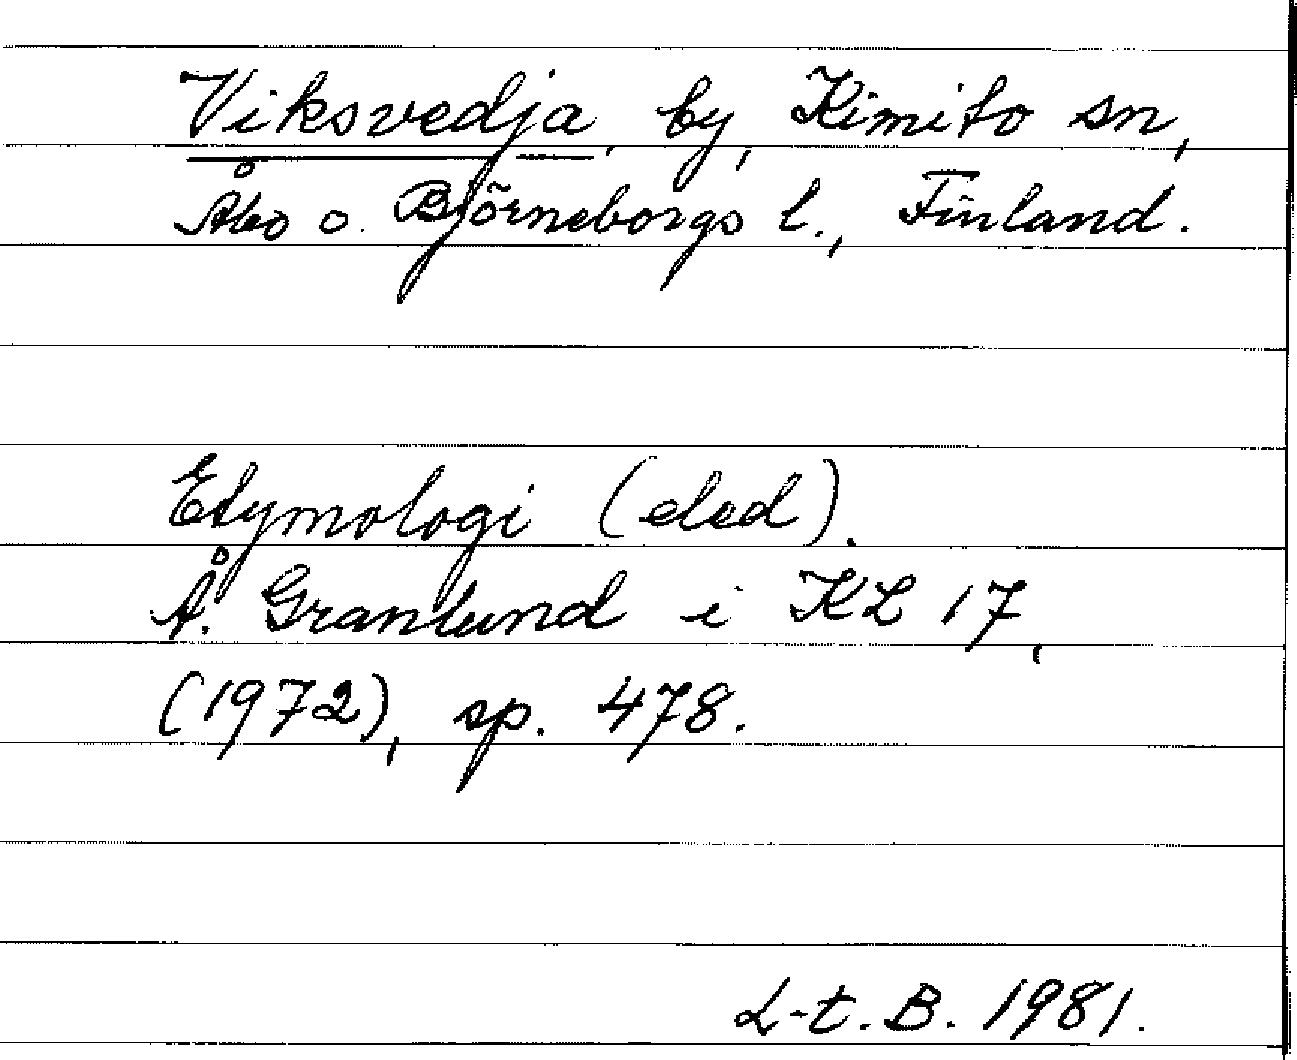 Viksvedja, by, Kimito sn,
Åbo o. Björneborgs l., Finland.
Etymologi (eled).
Å. Granlund i KL 17,
(1972), sp. 478.
L-t. B. 1981.